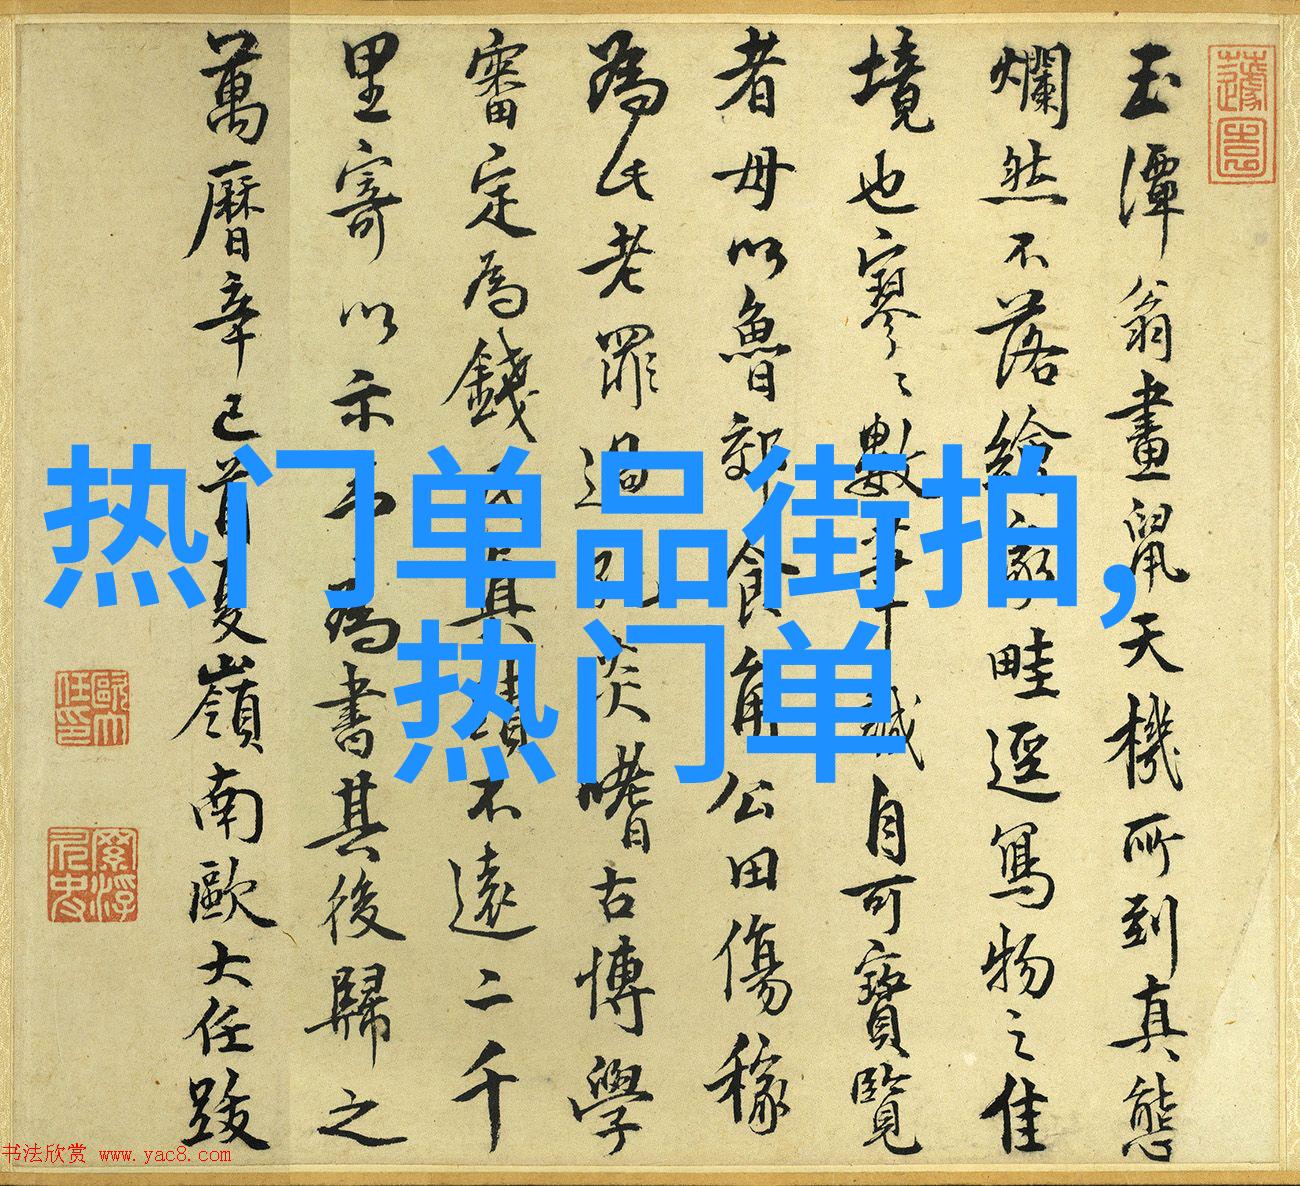 玉潭翁畫鼠天機所到真態
爛然不落繪家畦逕寫物之佳
境也寥〻數筆誠自可寶覽
者毋以魯郊食角公田傷稼
為氏老罪過孔炎嗜古博學
審定為錢真蹟不遠二千
里寄以示為書其後歸之
萬曆辛巳首夏嶺南歐大任跋
热门单品街拍，
热门单
书法欣赏 www.yac8.com